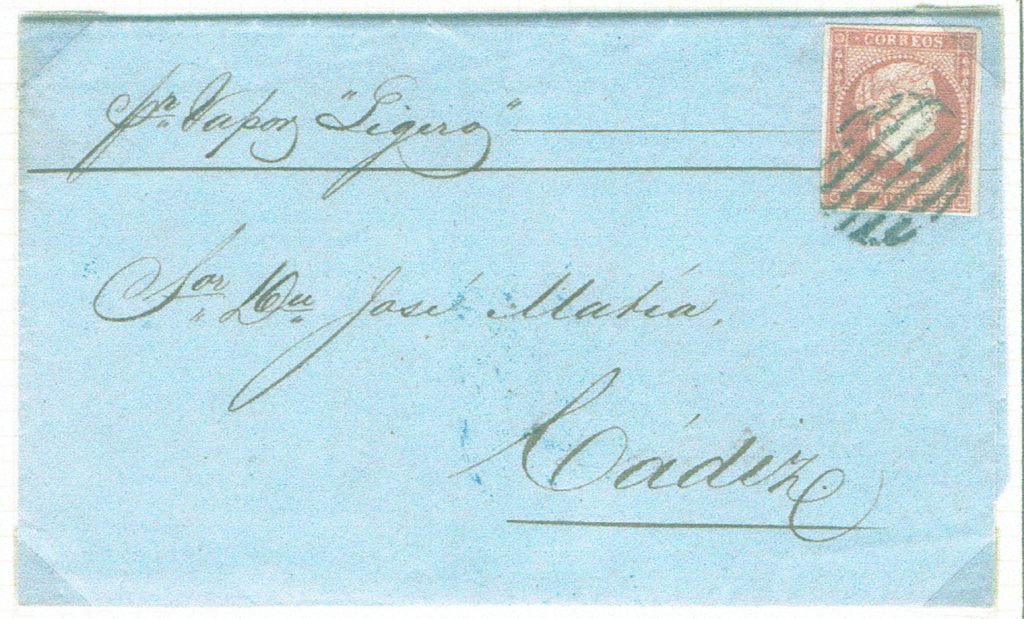 pr. Vapor "Ligero"
CORREOS
Sor. Dn. José Matía.
Cádiz